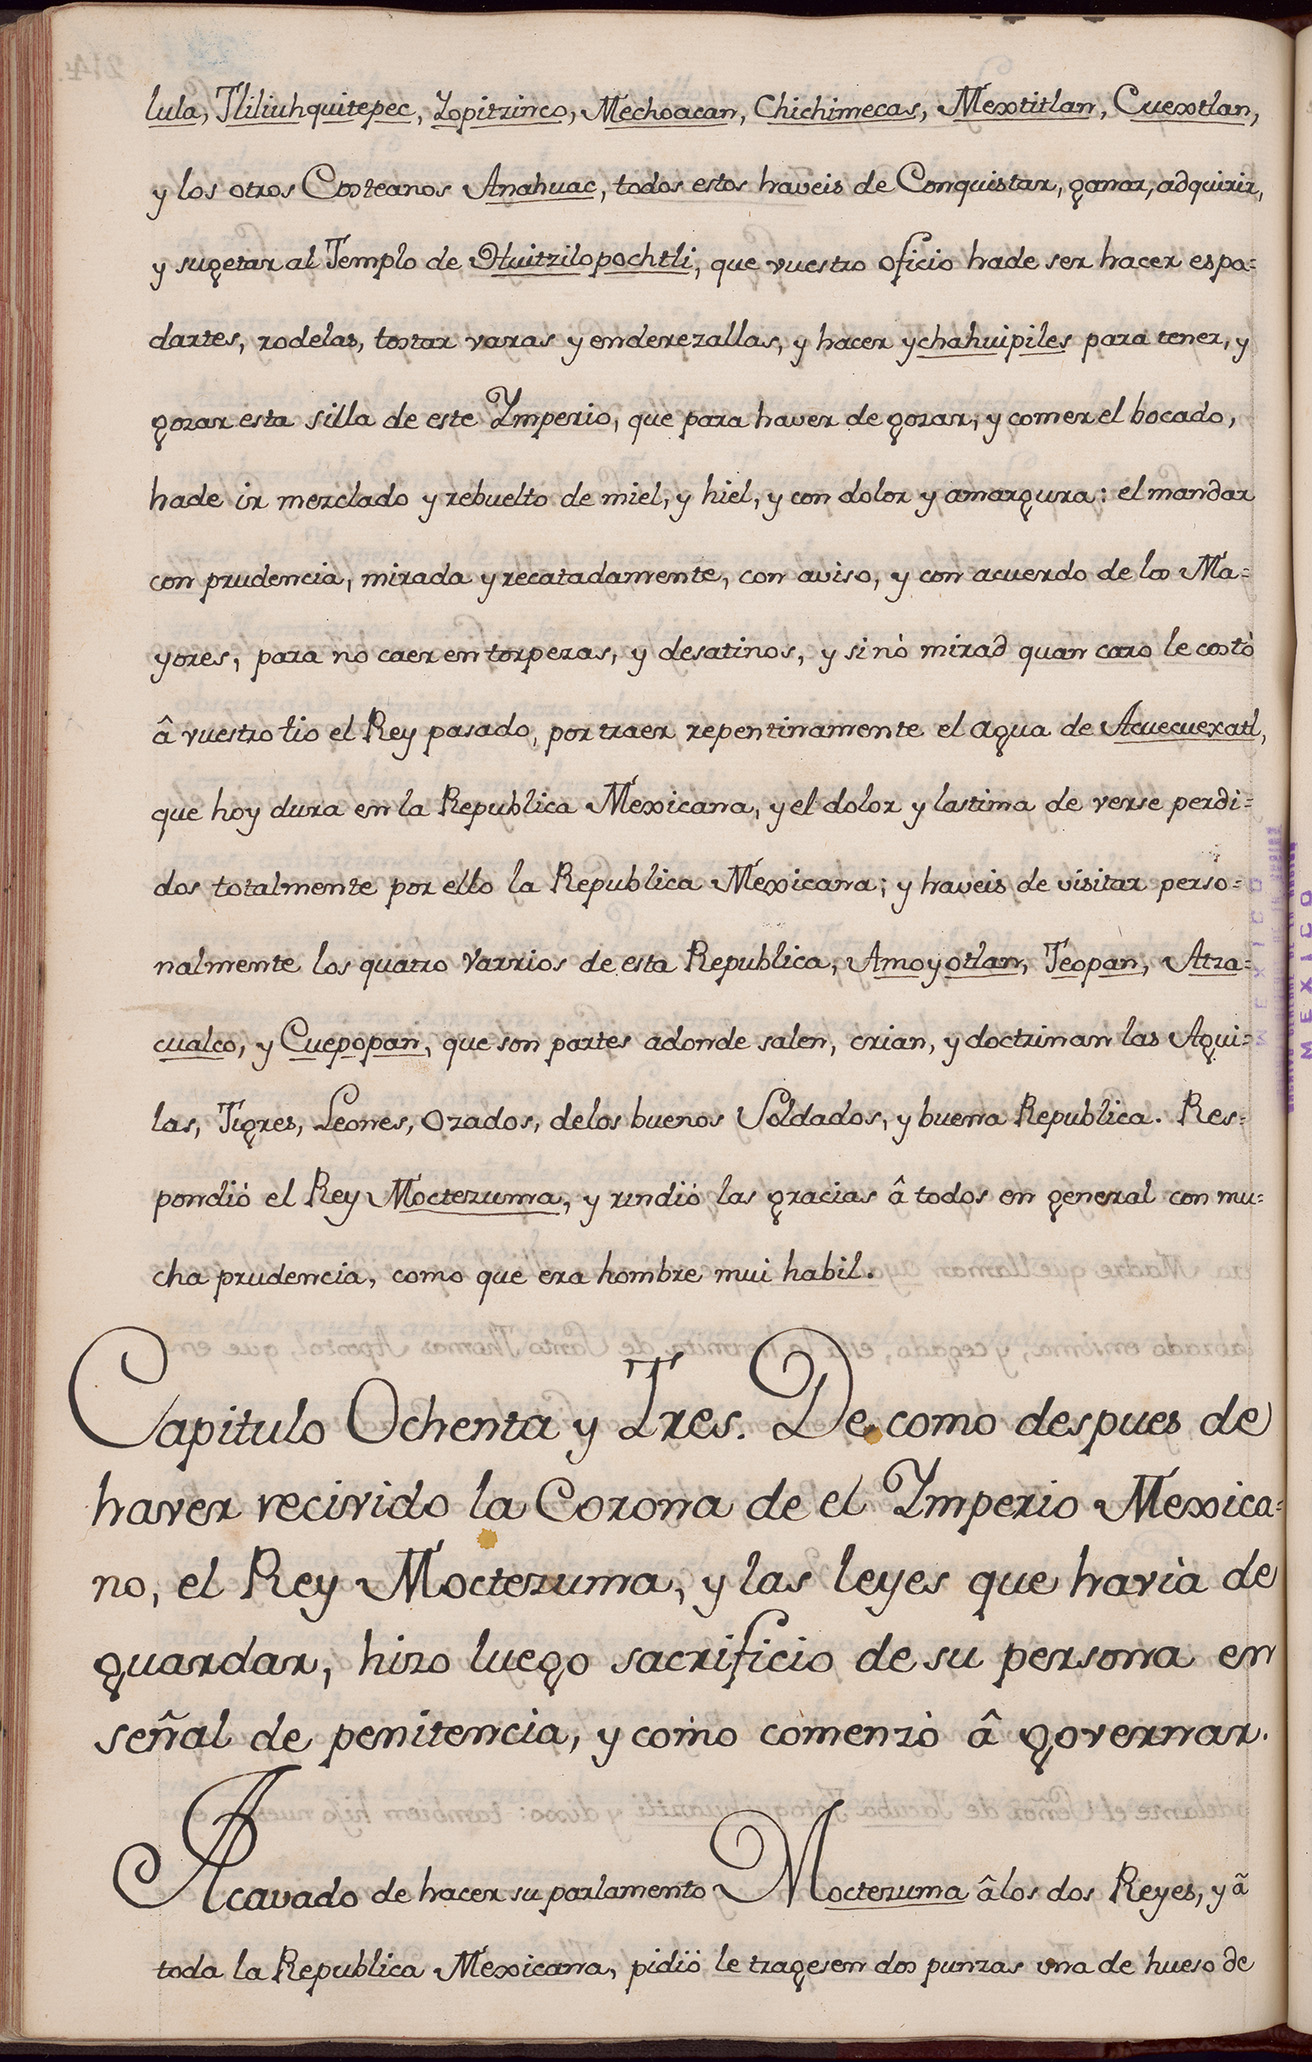 lula, Tliliuhquitepec, Yopitzinco, Mechoacan, Chichimecas, Mextitlan, Cuextlan,
y los otros Costeanos Anahuac, todos estos haveis de Conquistar, ganar, adquirir,
y sugetar al Templo de Huitzilopochtli, que vuestro oficio hade ser hacer espa=
dartes, rodelas, tostar varas y enderezallas, y hacer ychahuipiles para tener, y
gozar esta silla de este Ymperio, que para haver de gozar, y comer el bocado,
hade ir mezclado y rebuelto de miel, y hiel, y con dolor y amargura: el mandar
con prudencia, mirada y recatadamente, con aviso, y con acuerdo de los Ma=
yores, para no caer en torpezas, y desatinos, y si nò mirad quan caro le costò
â vuestro tio el Rey pasado, por traer repentinamente el agua de Acuecuexatl,
que hoy dura en la Republica Mexicana, y el dolor y lastima de verse perdi=
dos totalmente por ello la Republica Mexicana; y haveis de visitar perso=
nalmente los quatro Varrios de esta Republica, Amoyotlan, Teopan, Atza=
cualco, y Cuepopan, que son partes adonde salen, crian, y doctrinan las Agui=
las, Tigres, Leones, Ozados, delos buenos Soldados, y buena Republica. Res=
pondió el Rey Moctezuma, y rindió las gracias â todos en general con mu=
cha prudencia, como que era hombre mui habil.
Capitulo Ochenta y Tres. De como despues de
haver recivido la Corona de el Ymperio Mexica=
no, el Rey Moctezuma, y las leyes que havià de
guardar, hizo luego sacrificio de su persona en
señal de penitencia, y como comenzò â governar.
Acavado de hacer su parlamento Moctezuma âlos dos Reyes, y ã
toda la Republica Mexicana, pidiò le tragesen dos punzas una de hueso de
MEXICO